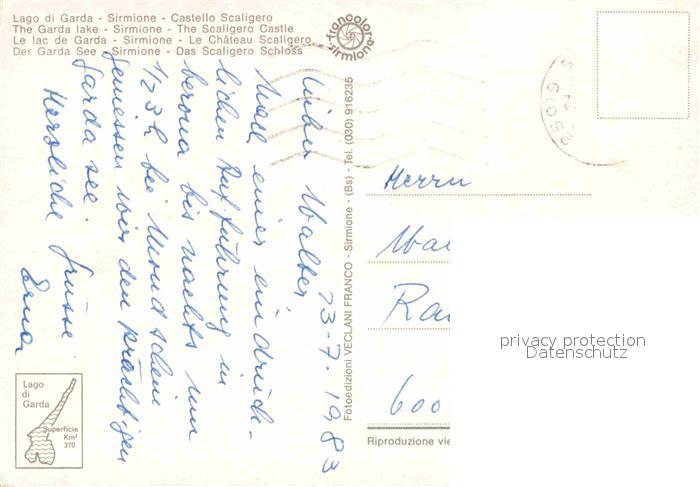 Lago di Garda - Sirmione - Castello Scaligero
The Garda lake - Sirmione - The Scaligero Castle
Le lac de Garda - Sirmione - Le Château Scaligero
Der Garda See - Sirmione - Das Scaligero Schloss
francolor
sirmione
13.7.1983
Lieber Walter,
Nach einer eindrück-
lichen Aufführung in
Verona bis nachts um
1/2 3h bei Mondschein
geniessen wir den prächtigen
Garda see.
Herzliche Grüsse
Erna
Fotoedizioni VECLANI FRANCO - Sirmione - (Bs) - Tel. (030) 916235
25019
Herrn
Wal
Ra
600
privacy protection
Datenschutz
Riproduzione vie
Lago
di
Garda
Superficie
Km²
370